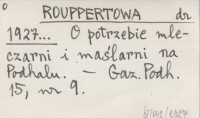 ROUPPERTOWA dr
1927... O potrzebie mle-
czarni i maślarni na
Podhalu. — Gaz. Podh.
15, nr 9.